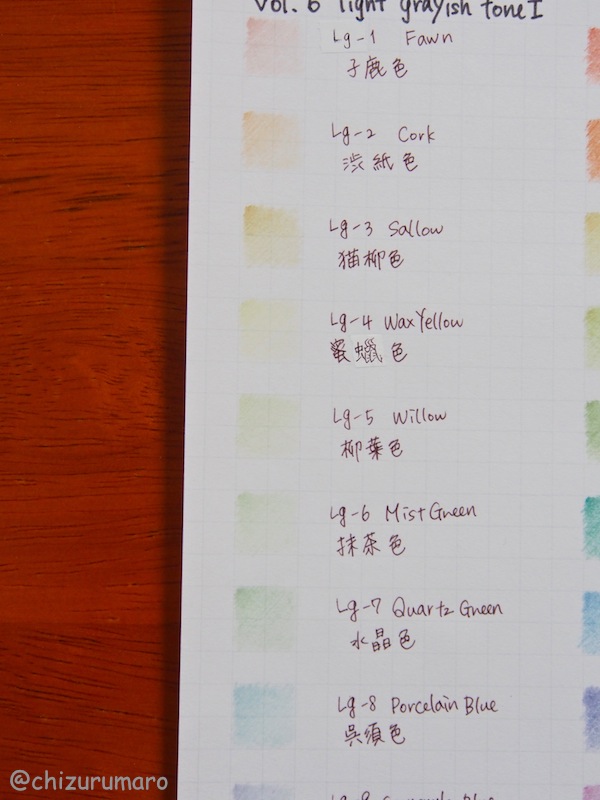 Vol. 6 light grayish tone I
Lg-1 Fawn
子鹿色
Lg-2 Cork
渋紙色
Lg-3 Sallow
猫柳色
Lg-4 Wax Yellow
蜜蠟色
Lg-5 Willow
柳葉色
Lg-6 Mist Green
抹茶色
Lg-7 Quartz Green
水晶色
Lg-8 Porcelain Blue
呉須色
Blue
@chizurumaro